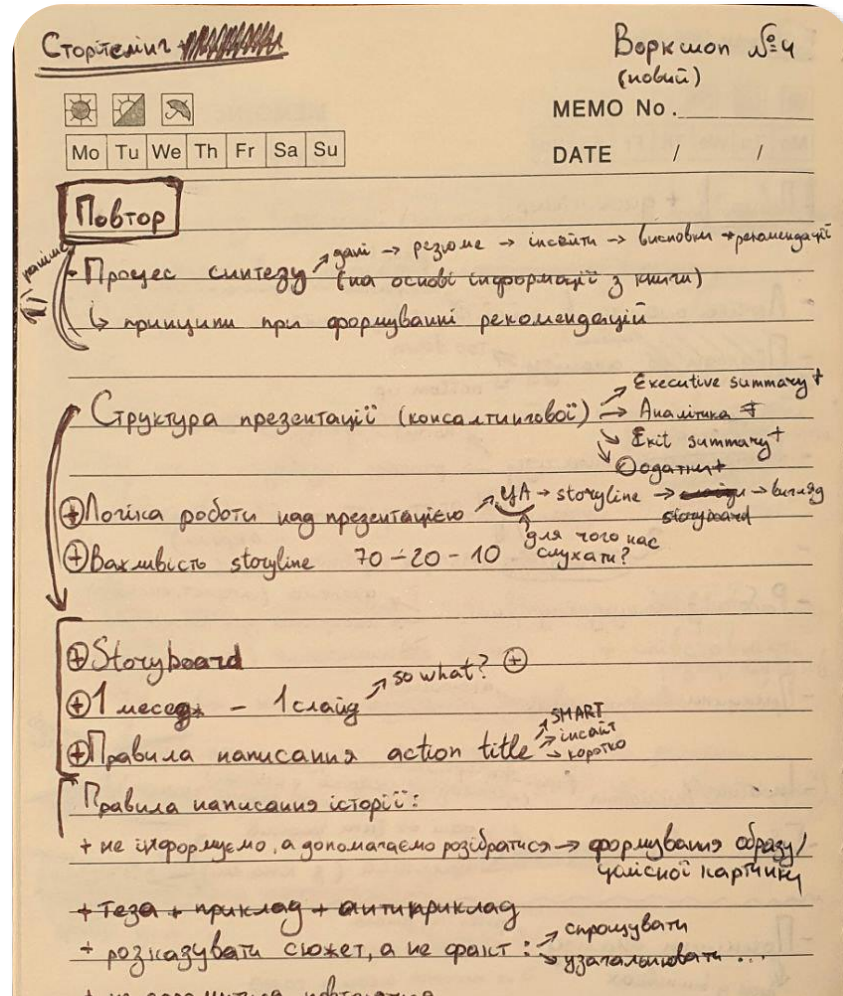 Сторітелінг
Воркшоп №4
(новий)
MEMO No.
Mo Tu We Th Fr Sa Su
DATE / /
Повтор
- Процес синтезу → дані → резюме → інсайти → висновки → рекомендації
(на основі інформації з книги)
↳ принципи при формуванні рекомендацій
Структура презентації (консалтингової) → Executive summary +
→ Аналітика +
→ Exit summary +
→ Додатки +
+ Логіка роботи над презентацією → ЦА → storyline → storyboard → вигляд
для чого нас
слухати?
+ Важливість storyline 70 - 20 - 10
+ Storyboard
+ 1 месседж - 1 слайд → so what? +
+ Правила написання action title → SMART
→ інсайт
→ коротко
Правила написання історії:
+ не інформуємо, а допомагаємо розібратися → формування образу/
цілісної картинки
+ теза + приклад + антиприклад
+ розказувати сюжет, а не факт : → спрощувати
→ узагальнювати ...